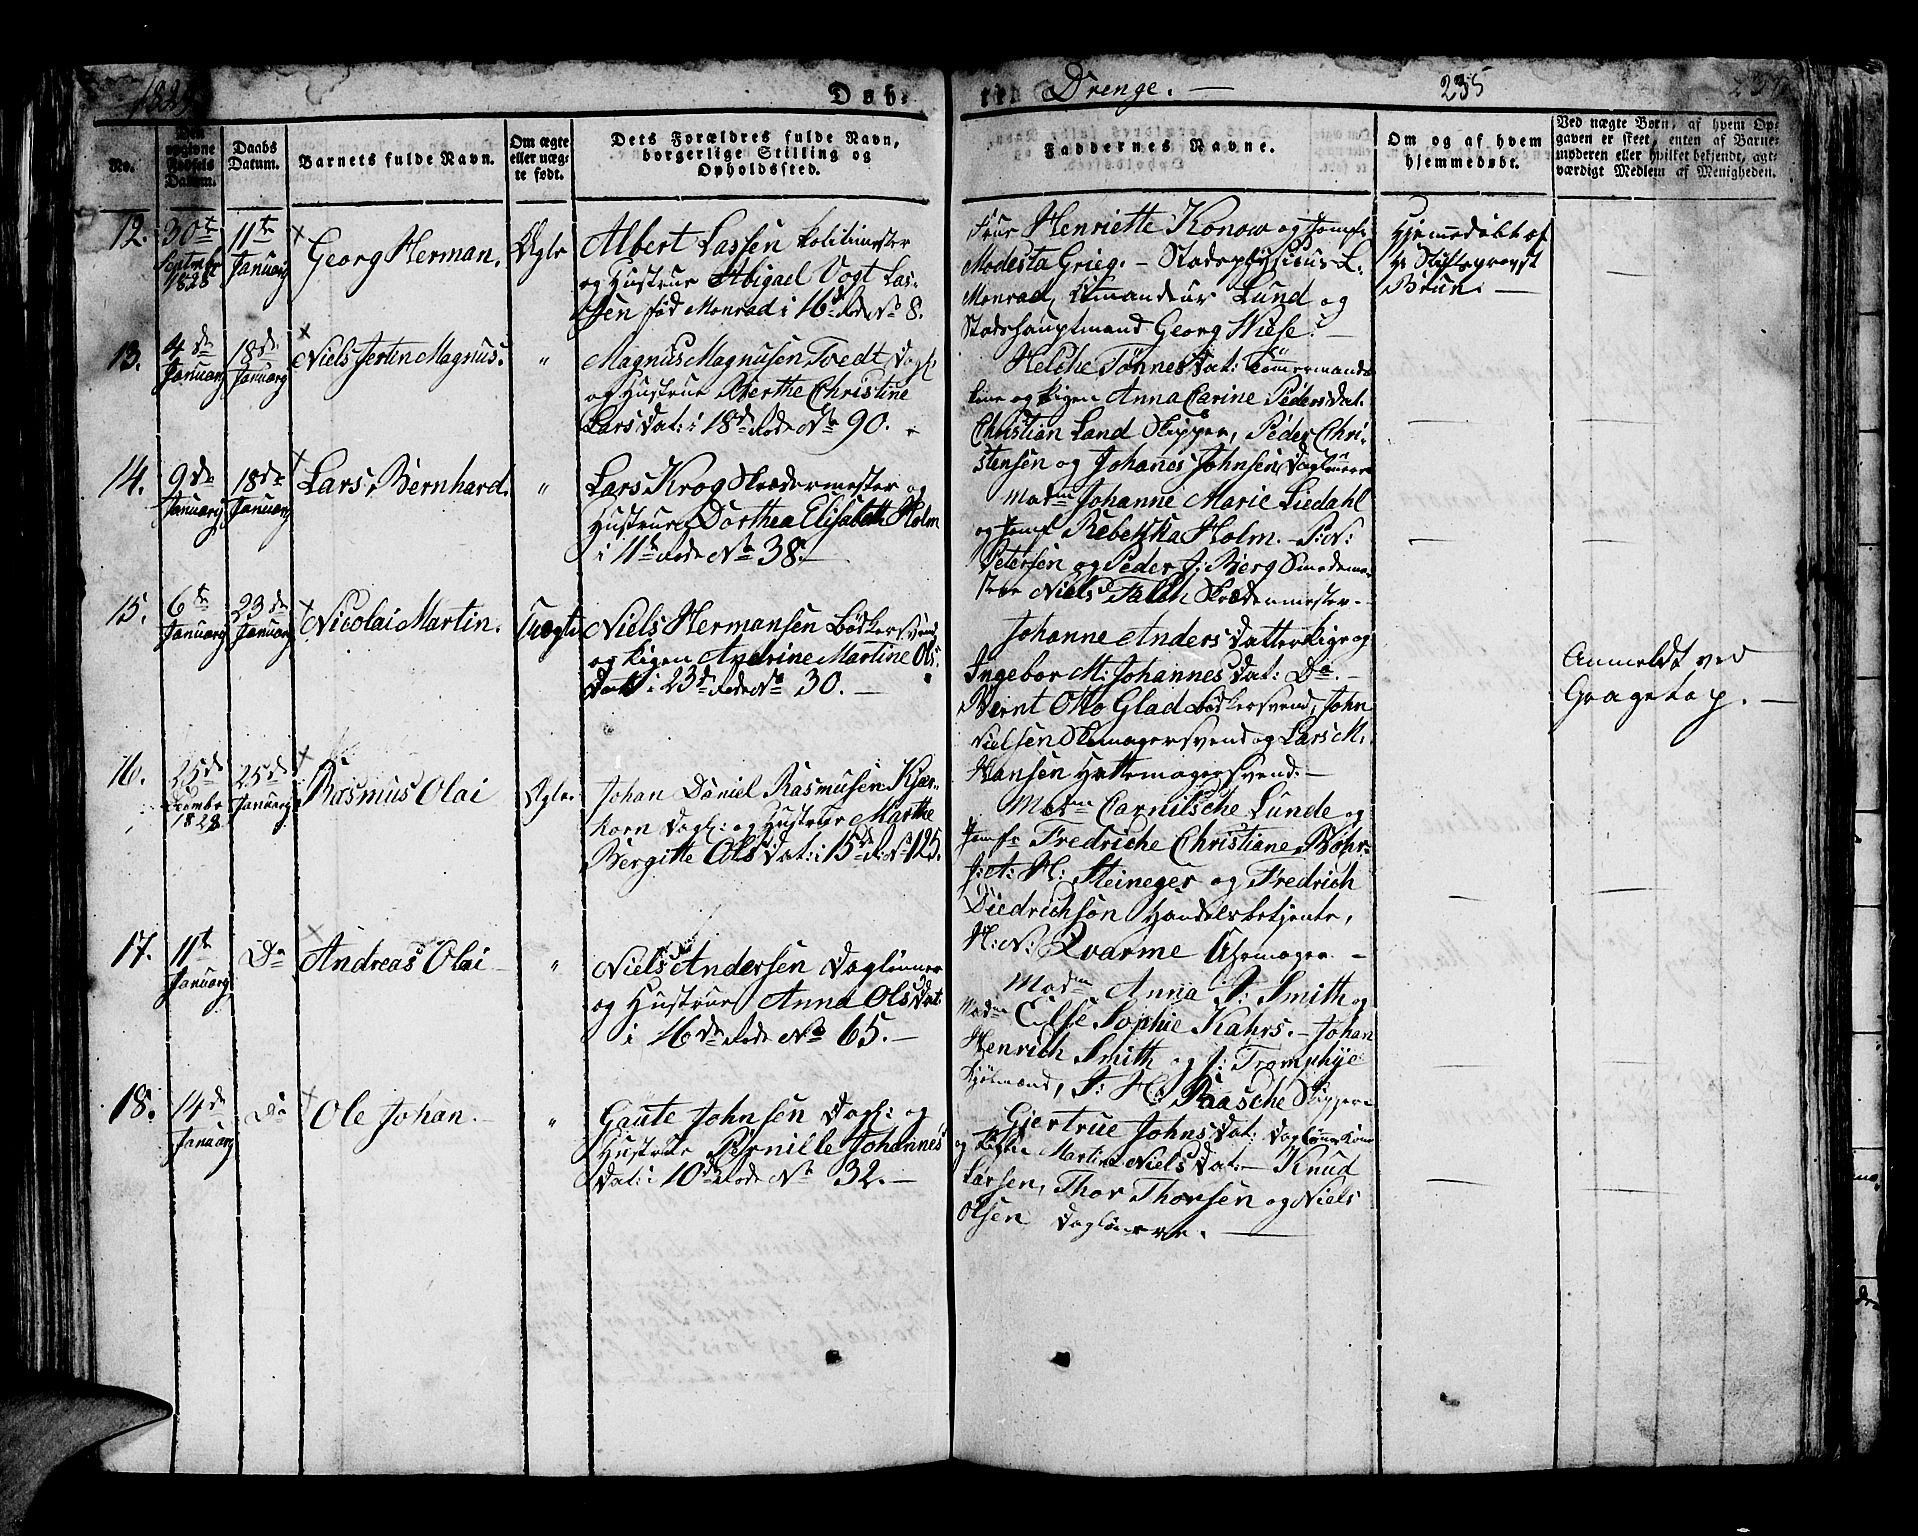 1829
Døb-
te Drenge. —
235
No.
Den opgivne Fødsels Datum.
Daabs Datum.
Barnets fulde Navn.
Om ægte eller uægte født.
Dets Forældres fulde Navn, borgerlige Stilling og Opholdssted.
Faddernes Navne.
Om og af hvem hjemmedøbt.
Ved uægte Børn, af hvem Opgaven er skeet, enten af Barnemoderen eller hvilket bekjendt, agtværdigt Medlem af Menigheden.
12.
30te Septembr 1828
11te Januarij
Georg Herman.
Ægte
Albert Lassen Politimester
og Hustrue Abigael Vogt Las-
sen fød Monrad i 16d Rode No 8.
Frue Henriette Konow og Jomfr
Modesta Grieg. — Stadsphysicus L.
Monrad, Lund og
Stadshauptmand Georg Wiese. —
Hjemedøbt af
Hr Stiftsprovst
Brun. —
13.
4de Januarij
18de Januarij
Niels Jertin Magnus.
"
Magnus Magnusen Tvedt Dagl.
og Hustrue Berthe Christine
Larsdat: i 18d Rode No 90.
Helche Tønnesdat: Tømermands
kone og Pigen Anna Carine Pedersdat.
Christian Land Skipper, Peder Chri-
stensen og Johanes Johnsen, Daglønnere
14.
9de Januarij
18de Januarij
Lars Bernhard.
"
Lars Krog Skrædermester og
Hustrue Dorthea Elisabeth Holm
i 11te Rode No 38. —
Madm Johanne Marie Liedahl
og Jomf Rebekka Holm. — P: N:
Petersen og Peder J: Berg Smedeme-
stere Niels Falch Skrædermester. —
15.
6te Januarij
23de Januarij
Nicolai Martin.
Uægte
Niels Hermansen Bødkersvend
og Pigen Andrine Martine Ols-
dat i 23d Rode No 30. —
Johanne Andersdatter Pige og
Ingebor M: Johannesdat: Do. —
Bernt Otto Glad Bødkersvend, John
Nielsen Skomagersvend og Lars M:
Hansen Hattemagersvend. —
Anmeldt ved
—
16.
25de Decembr 1828
25de Januarij
Rasmus Olai
Ægte.
Johan Daniel Rasmusen Kjær-
Korn Dagl: og Hustrue Marthe
Bergitte Olsdat: i 15d R: No 125.
Madm Lunde og
Jomfr Fredriche Christiane Bøhr.
J: A: H: Steineger og Fredrich
Diedrichsøn Handelsbetjente,
H: N: Qvarme Uhrmager. —
17.
11te Januarij
Do
Andreas Olai
"
Niels Andersen Daglønner
og Hustrue Anna Olsdat
i 16de Rode No 65. —
Madm Anna J: Smith og
Madm Else Sophie Kahrs. — Johan
Henrich Smith og J: Tromphye
J: H: Paasche Skippere
18.
14de Januarij
Do
Ole Johan.
"
Gaute Johnsen Dagl: og
Hustrue Pernille Johannes-
dat: i 10de Rode No 32. —
Gjertrue Johnsdat: Daglønnerkone
og Pigen Martine Nielsdat — Knud
Larsen, Thor Thorsen og Niels
Olsen Daglønnere. —